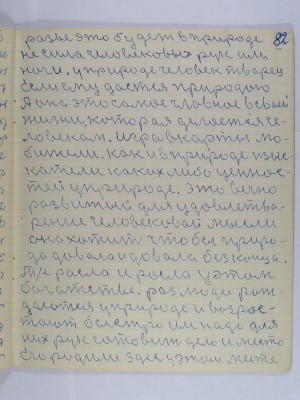 82
разве это будет в природе
не сила человековых рук или
ноги. у природе человек тварец
если ему дастся природою
Я она это самое главное в своей
жизни, которая делается че-
ловеком. играв карты мо-
били. Как и в природе изые-
катели каких либо ценнос-
тей у природе. Это вечно
развитый для удовлетва-
рение человековой мысли
она хотит чтобы приро-
да довала и довала без конца.
Т/е расла и расла у этом
богатстве. раз люди рож-
даются у природе и возрос-
тают быстро им надо для
них рук готовить дело и место
Его родили здесь у этом месте